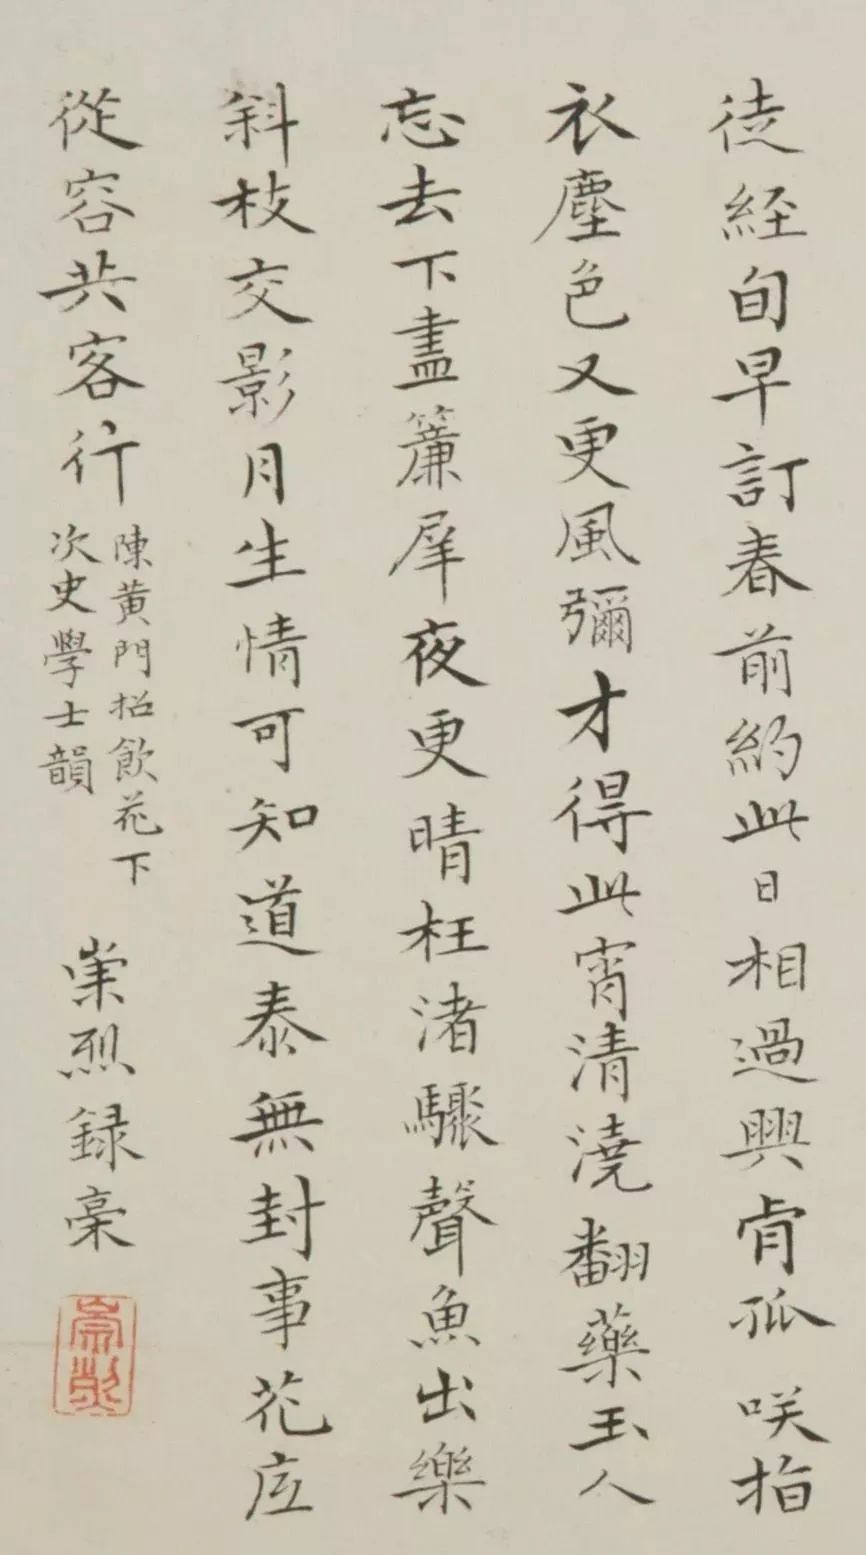 徒經旬早訂春前約此日相過興肯孤咲指
衣塵色又更風彌才得此宵清澆翻藥玉人
忘去下盡簾犀夜更晴枉渚驟聲魚出樂
斜枝交影月生情可知道泰無封事花底
從容共客行
陳黄門招飲花下
次史學士韻
崇烈録稾
崇烈